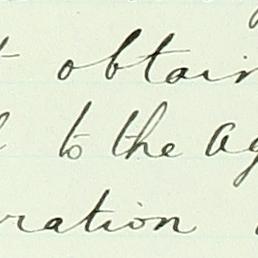 obtain
to the ag
ration